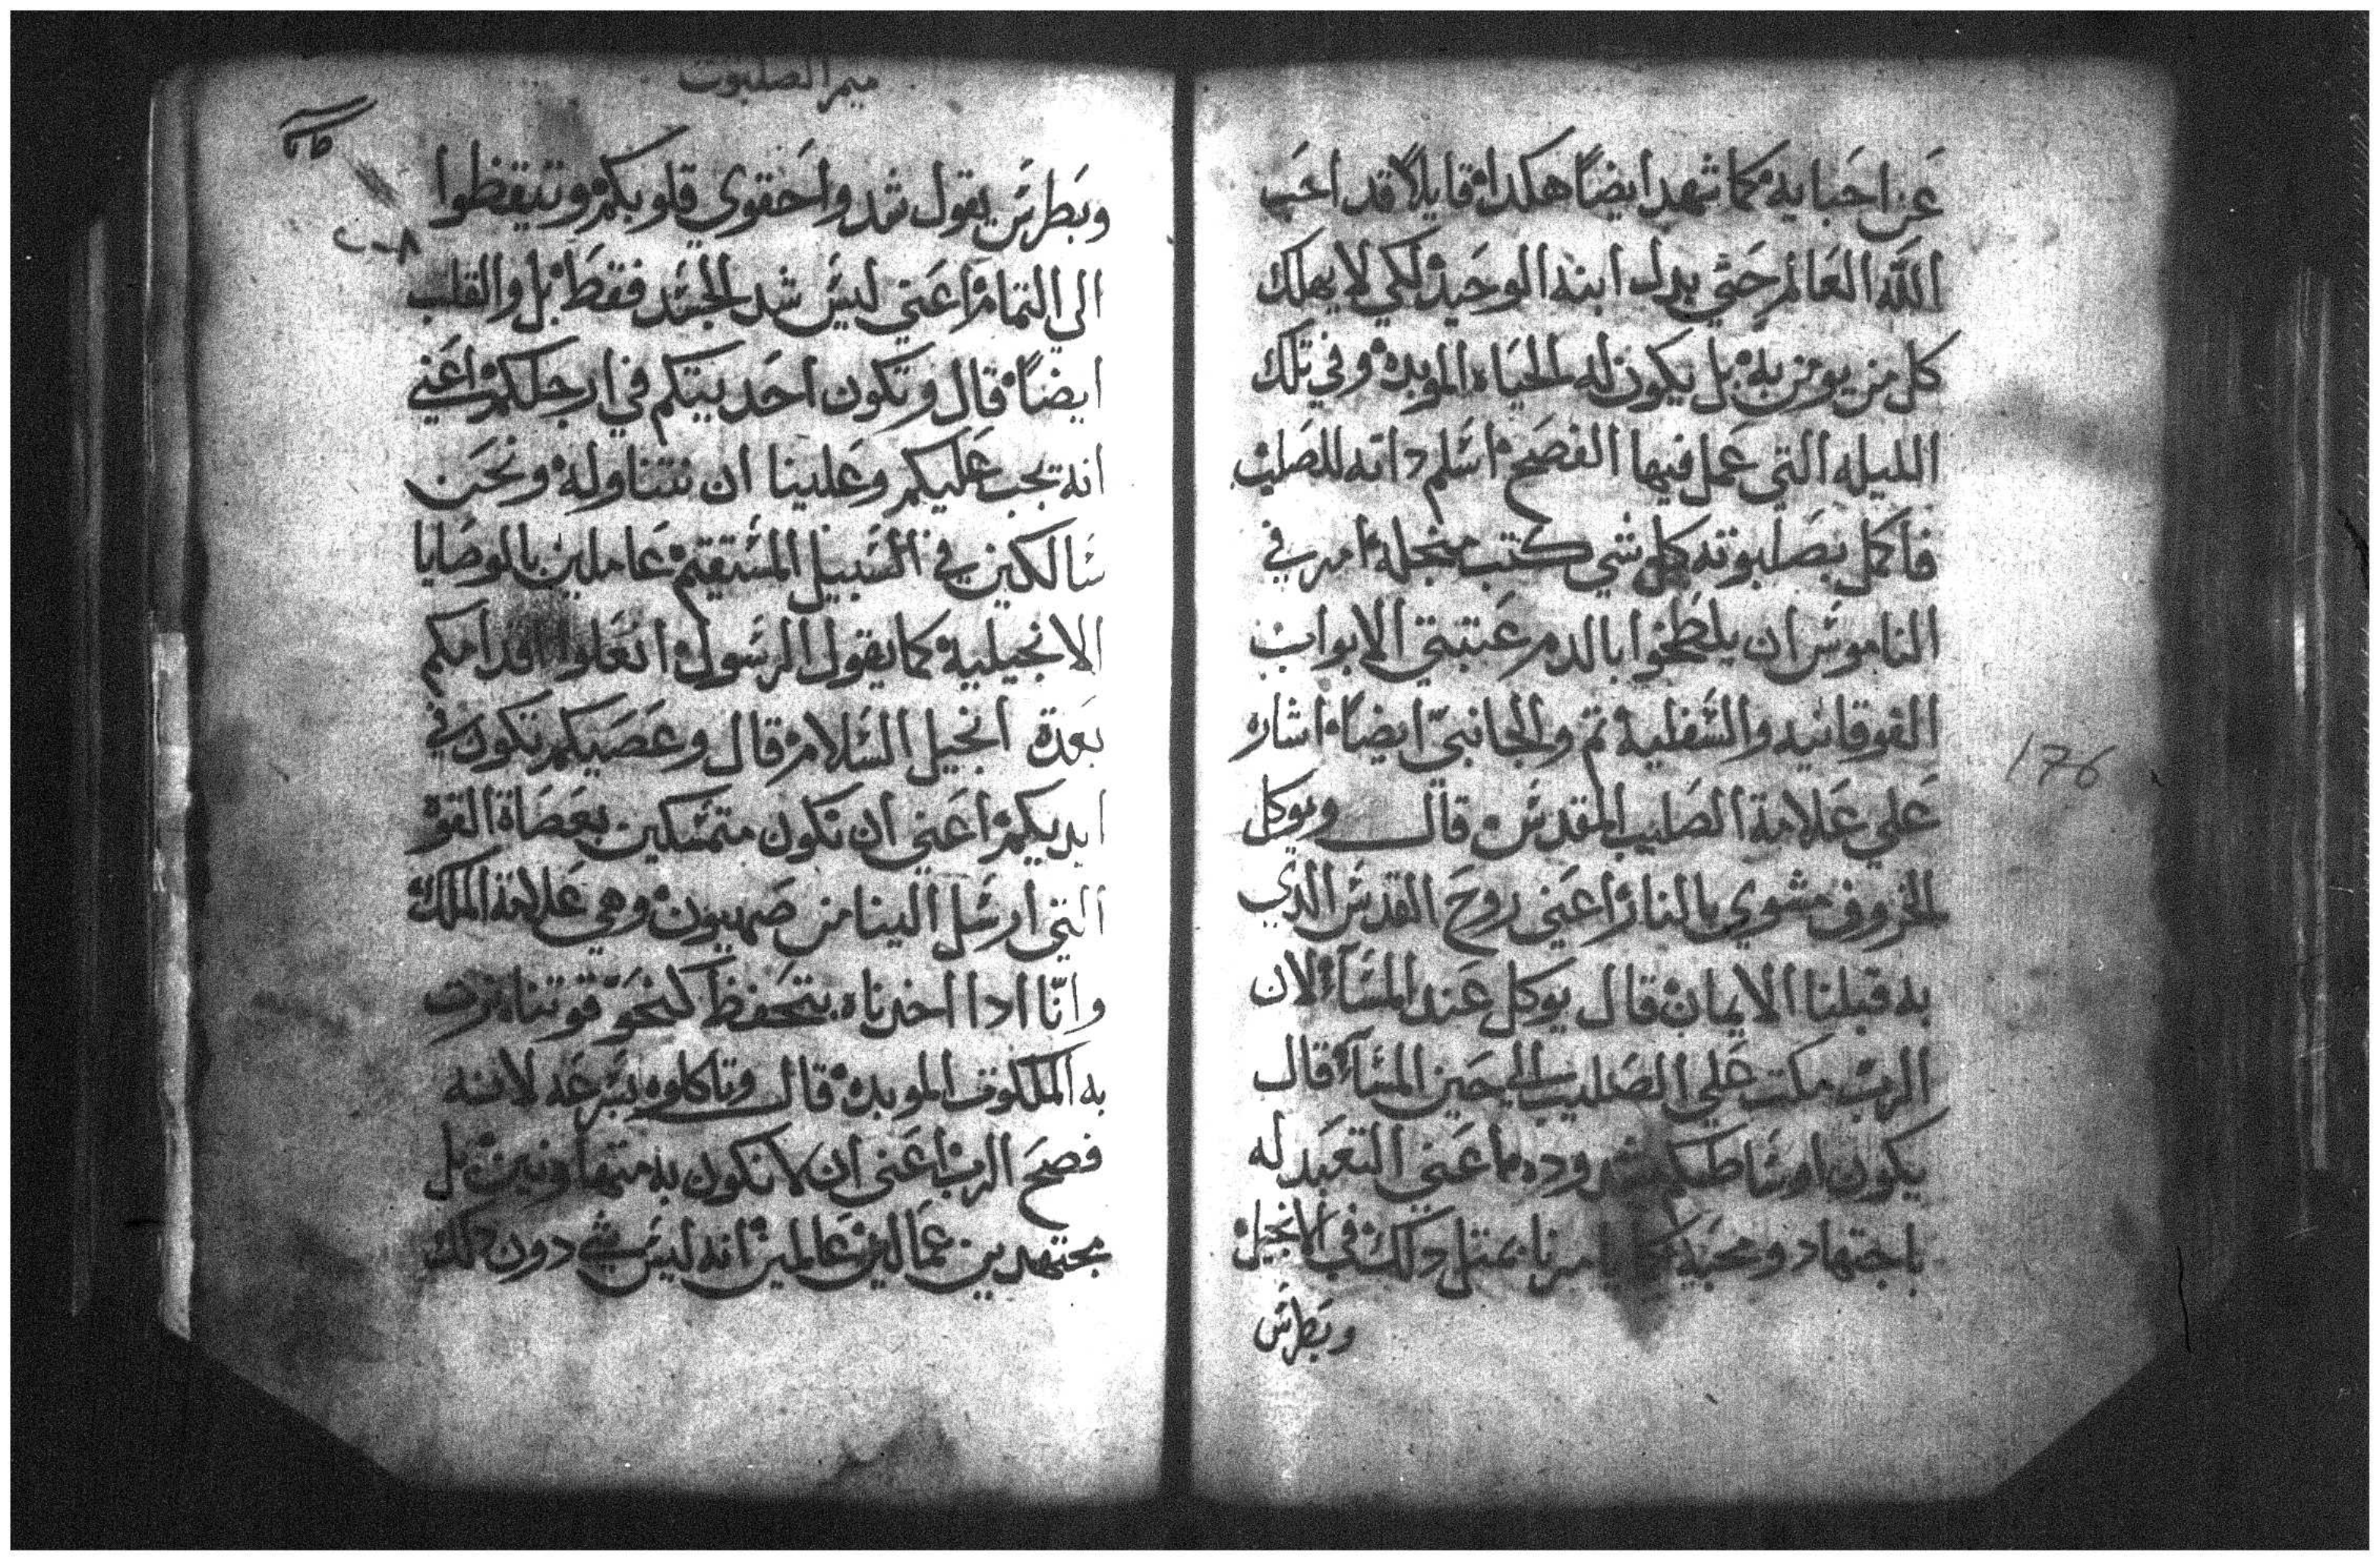 عن احبايه كما شهد ايضاً هكدا قايلاً قد احب
الله العالم حتي بدل ابنه الوحيد لكي لا يهلك
كل من يومن به بل يكون له الحياه الموبده وفي تلك
الليله التي عمل فيها الفصح اسلم داته للصليب
فاكمل بصلبوته كل شي كتب منجله امر في
الناموس ان يلطخوا بالدم عتبتي الابواب
الفوقانيه والسفليه تم والجانبي ايضاً اشاره
علي علامة الصليب المقدس قال ويوكل
الخروف مشوي بالنار اعني روح القدس الدي
به قبلنا الايمان قال يوكل عند المسآ لان
الرب مكت علي الصليب الي حين المسآ قال
يكون اوساطكم مشدوده اعني التعبد له
باجتهاد ومحبة يامرنا بمتل دلك في الانجيل
وبطرس
176
ميمر الصلبوت
وبطرس يقول شدوا احقوي قلوبكم وتيقظوا
الي التمام اعني ليس شد الجسد فقط بل والقلب
ايضاً قال وتكون احديتكم في ارجلكم اعني
انه يجب عليكم وعلينا ان نتناوله ونحن
سالكين في السبيل المستقيم عاملين بالوصايا
الانجيليه كما يقول الرسول انعلوا اقدامكم
بعدة انجيل السلام قال وعصيكم تكون في
ايديكم اعني ان نكون متمسكين بعصاة القوه
التي ارسل الينا من صهيون وهي علامة الملك
وانّا ادا اخدناه بتحفظ كنحو قوتنا نرت
به الملكوت الموبده قال وتاكلوه بسرعه لانه
فصح الرب اعني ان لا نكون به متهاونين بل
مجتهدين عمالين عالمين انه ليس شي دون دلك